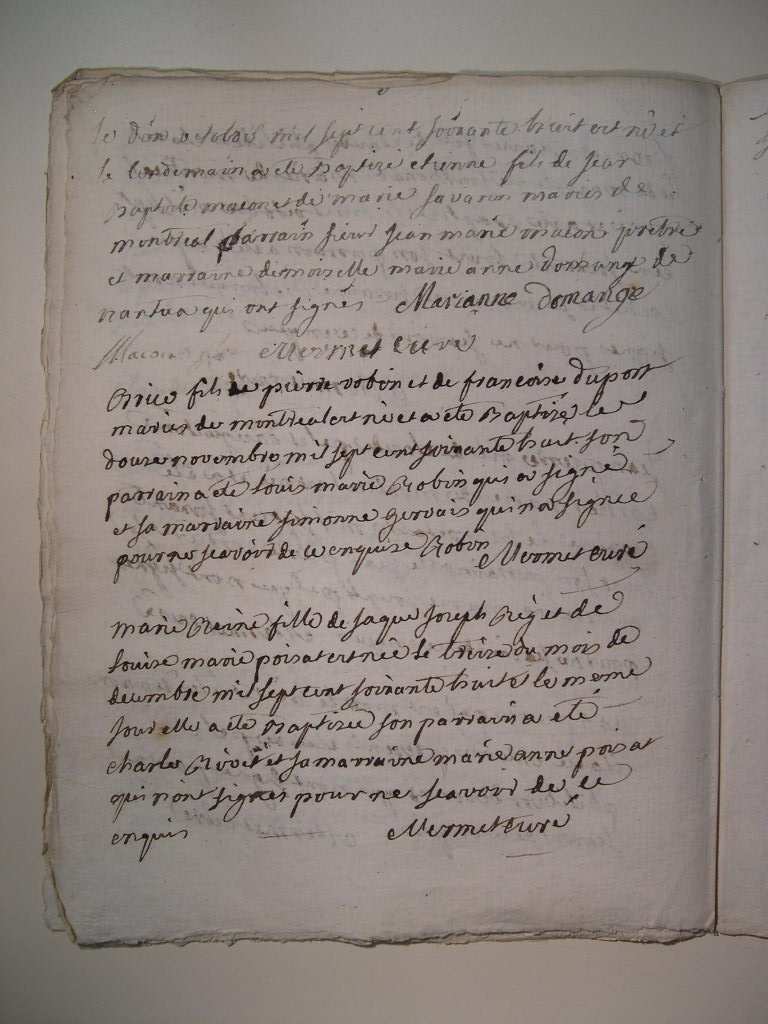 octobre mil sept cent soixante huit est né et
le lendemain a ete Baptizé etienne fils de jean
Baptiste macon et de marie savarin mariés de
montreal parrain sieur jean marie macon prêtre
et marraine demoiselle marie anne domange de
nantua qui ont signés Marianne Domange
Macon Mermet curé
fils de pierre robin et de francoise duport
mariés de montreal est né et a ete Baptizé le
douze novembre mil sept cent soixante huit son
parrain a ete louis marie Robin qui a signé
et sa marraine simonne gervais qui n'a signee
pour ne scavoir de ce enquise Robin Mermet curé
marie Reine fille de jaque joseph Rey et de
louise marie poisat est née le treize du mois de
decembre mil sept cent soixante huit & le meme
jour elle a ete Baptizee son parrain a eté
charle et sa marraine marie anne poisat
qui n'ont signes pour ne scavoir de ce
enquis Mermet curé